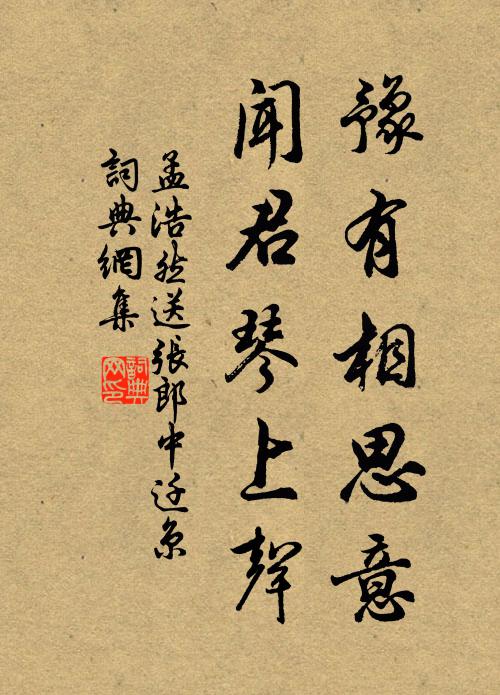 豫有相思意
聞君琴上聲
孟浩然送張郎中迁京
詞典網集
詞典網印